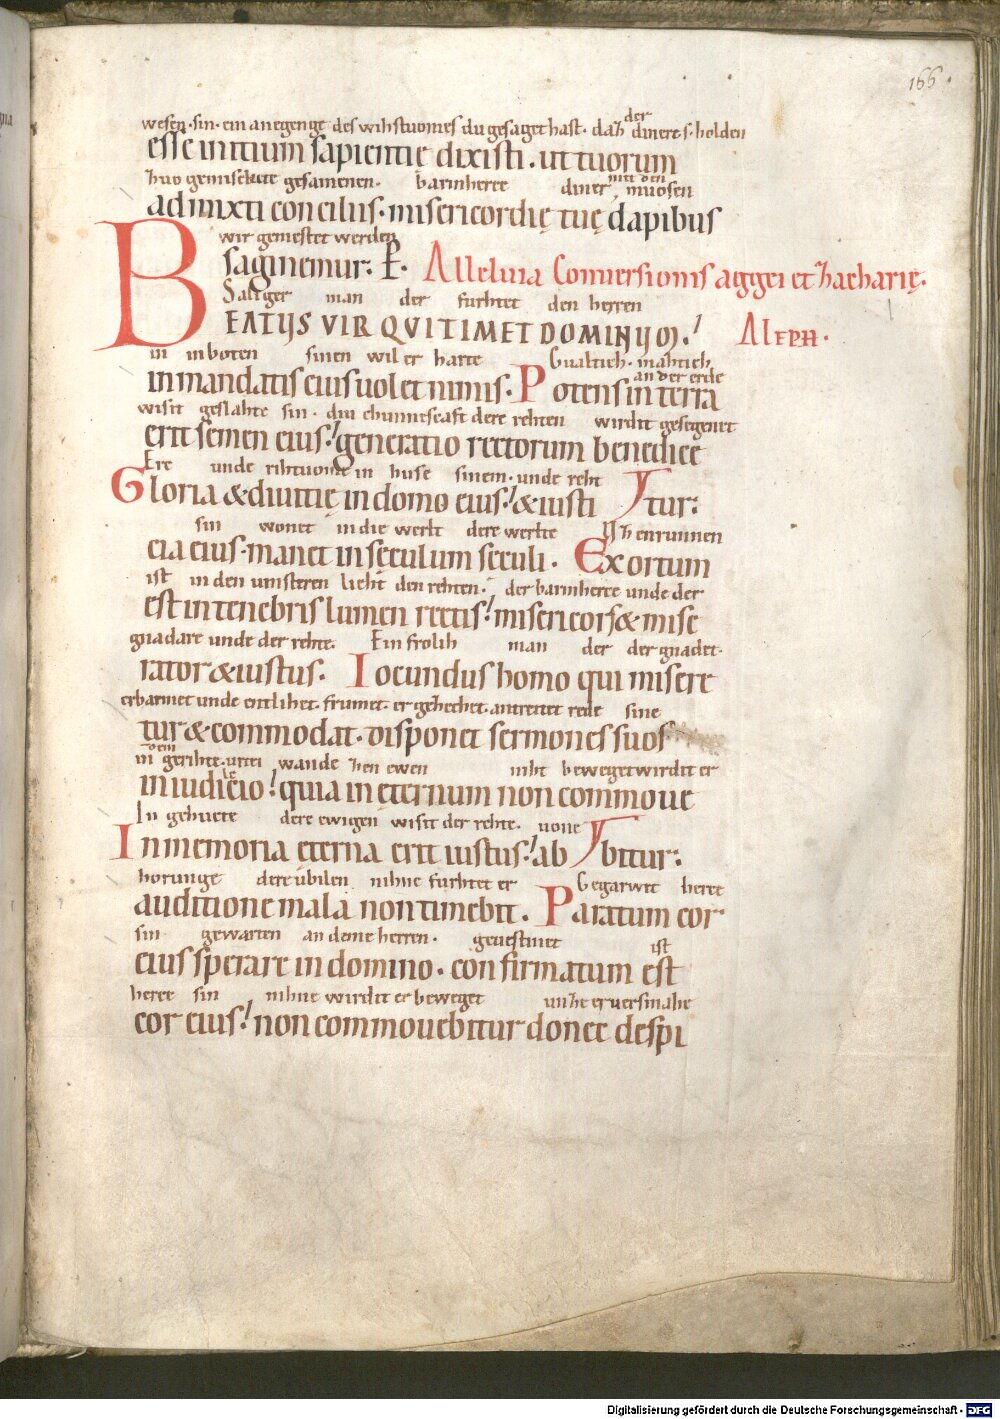 166.
der
wesen · sin · ein anegenge des wihstuomes du gesaget hast · daz dinere · s · holden
esse initium sapientię dixisti · ut tuorum
mit den
zuo gemisckete gesamenen · barmherce diner muosen
admixti conciliis · misericordię tuę dapibus
wir gemestet werden
saginemur : P · Alleluia Conversionis aggei et zacharię ·
Saliger man der furhtet den herren
BEATUS VIR QVI TIMET DOMINUM ! Aleph ·
in inboten sinen wil er harte Gualtich · mahtich
an der erde
in mandatis eius uolet nimis · Potens in terra
wisit geslahte sin · diu chunnescaft dere rehten wirdit gesegenet
erit semen eius ! generatio rectorum benedice
Ere unde rihtuome in huse sinem · unde reht
Gloria & diuitię in domo eius ! & iusti tur :
sin wonet in die werlt dere werlte Uzhenrunnen
cia eius · manet in sęculum sęculi · Exortum
ist in den uinsteren lieht den rehten · der barmherce unde der
est in tenebris lumen rectis ! misericors & mise
gnadare unde der rehte · Ein frolih man der der gnadet ·
rator & iustus · Iocundus homo qui misere
erbarmet unde entlihet · frumet · er gehechet · antreitet rede sine
tur & commodat · disponet sermones suos
dem
in gerihte · urtei wande zen ewen niht beweget wirdit er
le
in iudicio ! quia in eternum non commoue
In gehucte dere ewigen wisit der rehte · uone
In memoria eterna erit iustus ! ab bitur :
horunge dere ubilen nihne furhtet er Gegarwet herce
auditione mala non timebit · Paratum cor
sin gewarten an deme herren · geuestinet ist
eius sperare in domino · confirmatum est
herce sin nihne wirdit er beweget unze er versmahe
cor eius ! non commouebitur donec despi
Digitalisierung gefördert durch die Deutsche Forschungsgemeinschaft - DFG